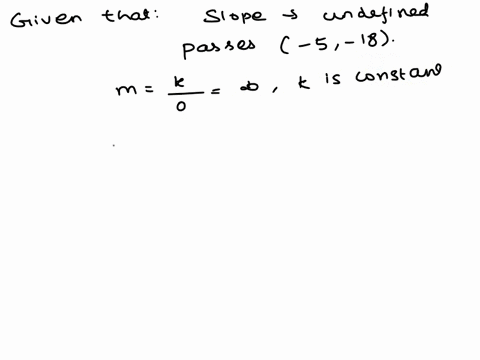 Given that: Slope → undefined
passes (-5, -18).
m = k/0 = ∞, k is constant